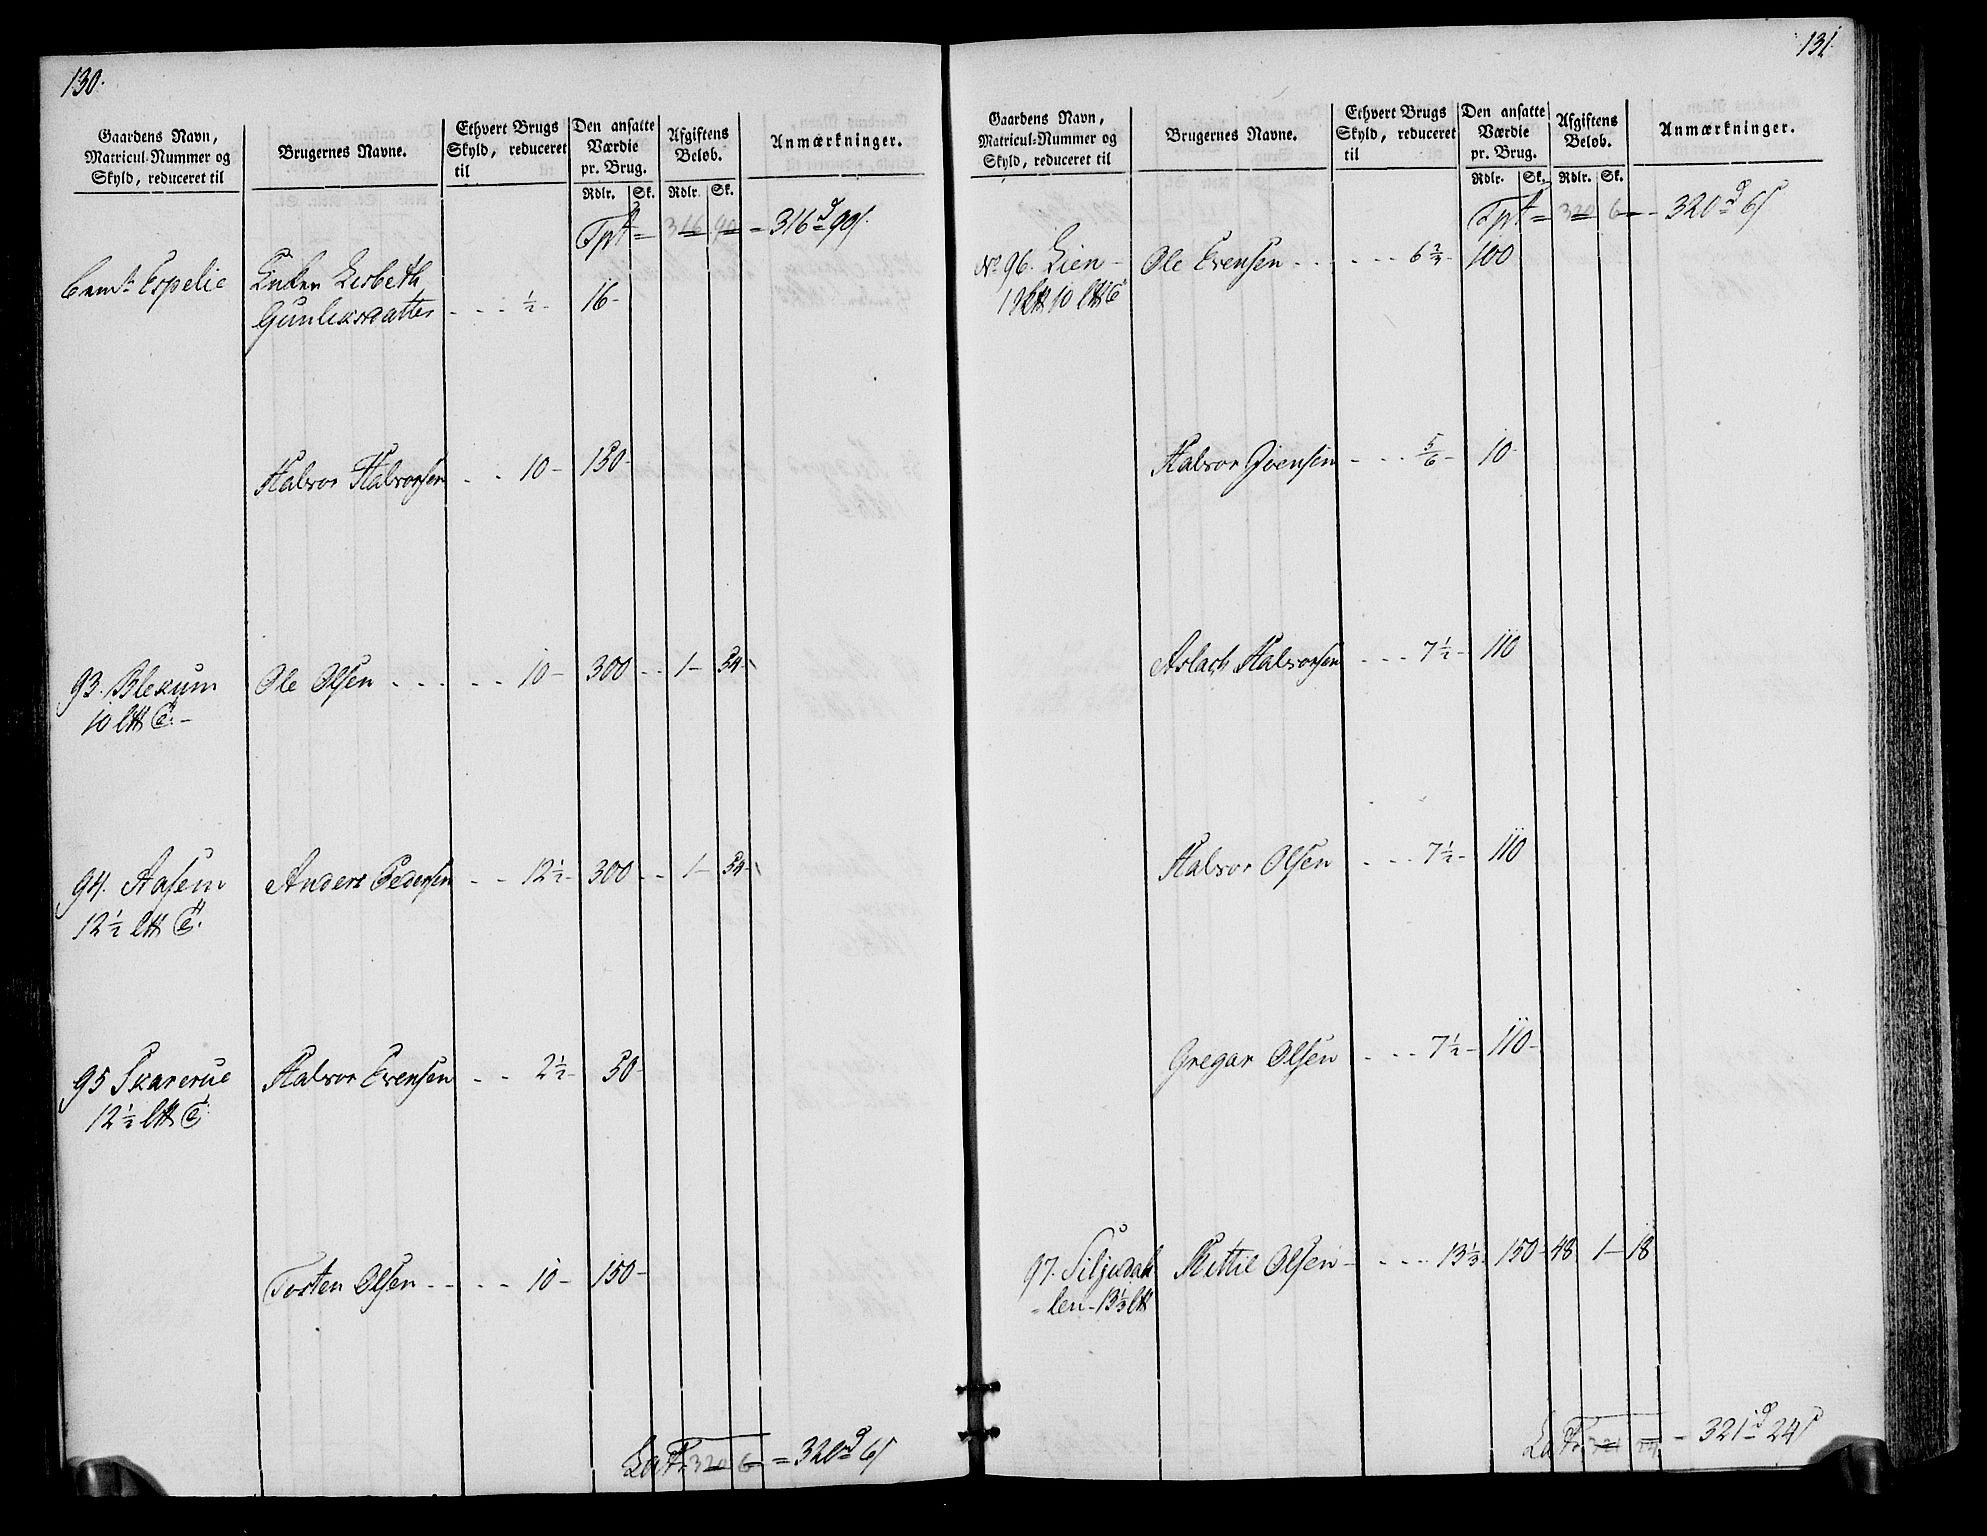 130.
Gaardens Navn, Matricul-Nummer og Skyld, reduceret til
Brugernes Navne.
Ethvert Brugs Skyld, reduceret til
Den ansatte Værdie pr. Brug.
Rdlr. Sk.
Afgiftens Beløb.
Rdlr. Sk.
Anmærkninger.
Tpt = 316 90 = 316 d 90 s.
Espelie Enken Lisbeth
Gunleksdatter - - - ½ - 16 -
Halvor Halvorsen - - 10 - 150 -
93. Blekum Ole Olsen - - - - - 10 - 300 - - 1 - 54 -
10 l℔ C. -
94. Aasem Anders Pedersen - - 12½ - 300 - - 1 - 54 -
12½ l℔ C.
95 Skarerue Halvor Evensen - - 2½ - 50 -
12½ l℔ C
Tosten Olsen - - - - 10 - 150 -
Lat. 320 6 = 320 d 6 s
131
Gaardens Navn, Matricul-Nummer og Skyld, reduceret til
Brugernes Navne.
Ethvert Brugs Skyld, reduceret til
Den ansatte Værdie pr. Brug.
Rdlr. Sk.
Afgiftens Beløb.
Rdlr. Sk.
Anmærkninger.
Tpt = 320 6 - 320 d 6 s
No 96. Lien - Ole Evensen - - - - - 6⅔ - 100
10 l℔ C
Halvor Joensen - - - ⅚ - 10 -
Aslach Halvorsen - - - 7½ - 110
Halvor Olsen - - - 7½ - 110
Gregar Olsen - - - 7½ - 110 -
97. Siljudal Kittil Olsen - - - - 13⅓ - 150 - 48 1 - 18
= len - 13⅓ l℔
Lat. 321 24 - 321 d 24 s